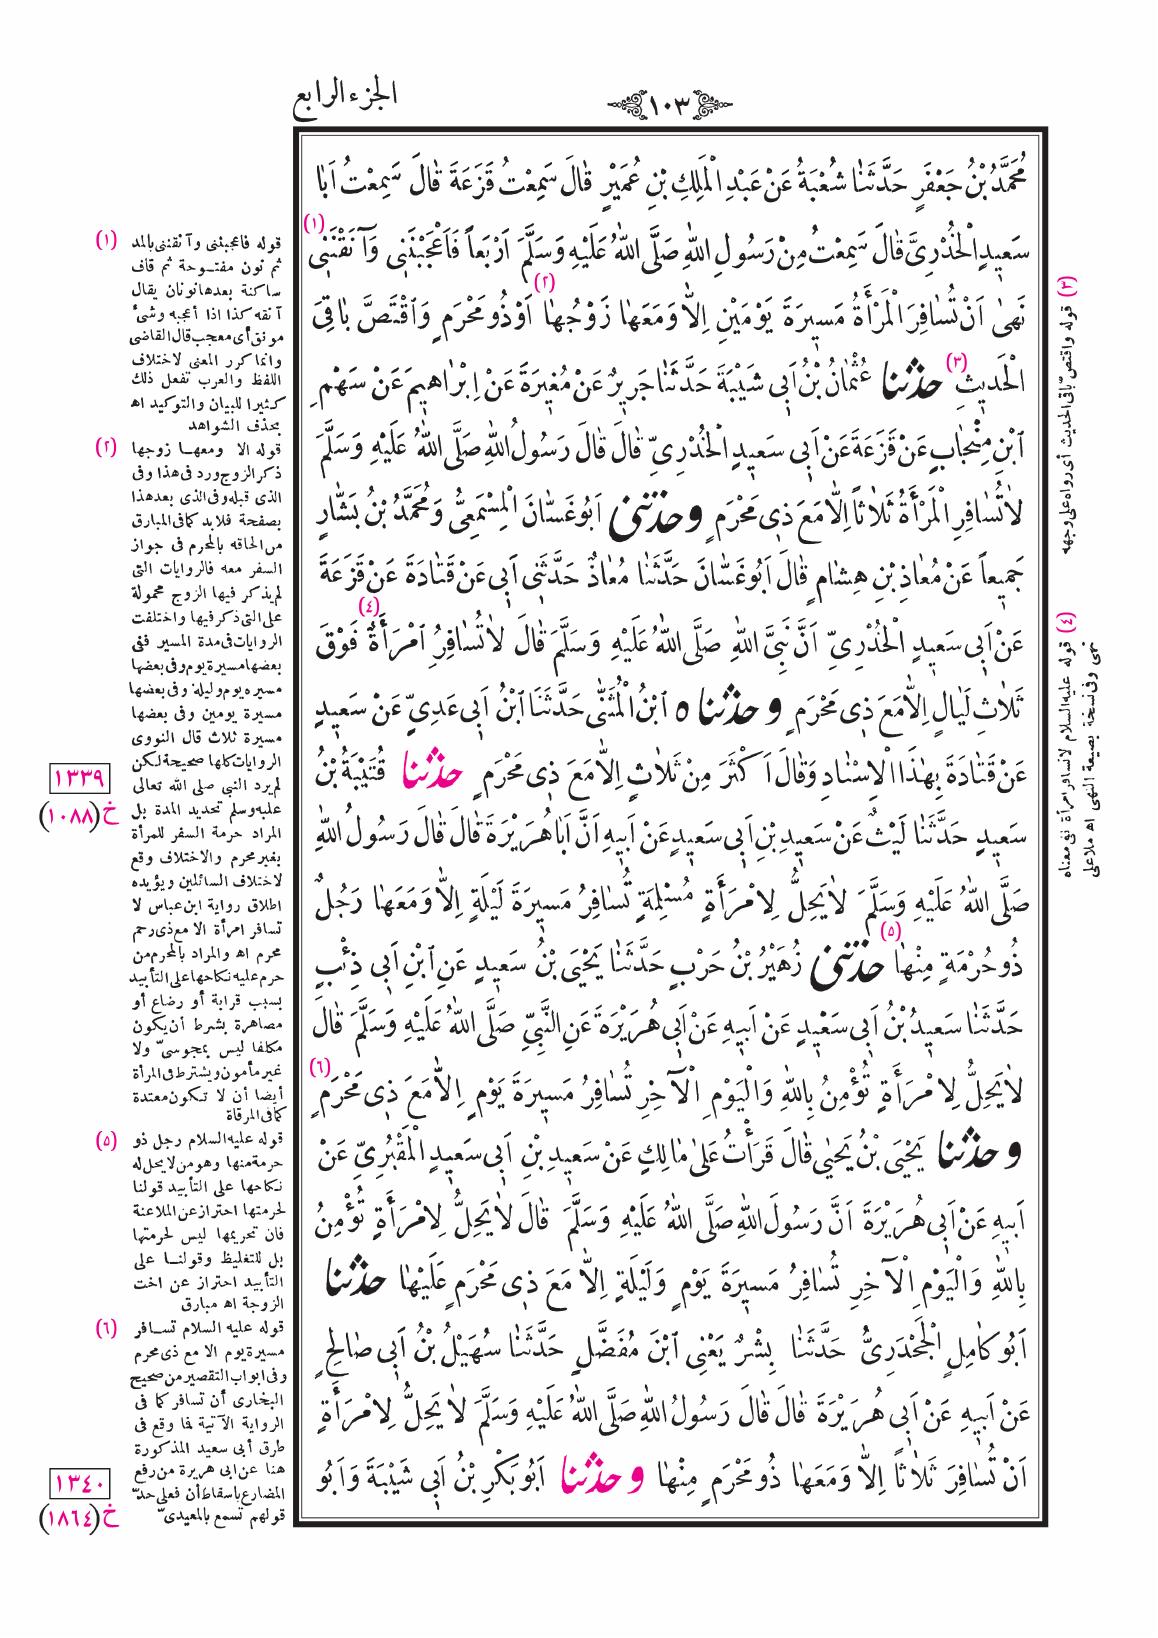 الجزء الرابع
١٠٣
مُحَمَّدُ بْنُ جَعْفَرٍ حَدَّثَنَا شُعْبَةُ عَنْ عَبْدِ الْمَلِكِ بْنِ عُمَيْرٍ قَالَ سَمِعْتُ قَزَعَةَ قَالَ سَمِعْتُ اَبَا
سَعِيدٍ الْخُدْرِىَّ قَالَ سَمِعْتُ مِنْ رَسُولِ اللهِ صَلَّى اللهُ عَلَيْهِ وَسَلَّمَ اَرْبَعاً فَاَعْجَبْنَنِى وَآنَقْنَنِى (١)
نَهٰى اَنْ تُسَافِرَ الْمَرْأَةُ مَسِيرَةَ يَوْمَيْنِ اِلاّٰ وَمَعَهَا زَوْجُهَا (٢) اَوْذُو مَحْرَمٍ وَاقْتَصَّ بَاقِىَ
الْحَدِيثِ (٣) حدثنا عُثْمَانُ بْنُ اَبِى شَيْبَةَ حَدَّثَنَا جَرِيرٌ عَنْ مُغِيرَةَ عَنْ اِبْرَاهِيمَ عَنْ سَهْمِ
ابْنِ مِنْجَابٍ عَنْ قَزَعَةَ عَنْ اَبِى سَعِيدٍ الْخُدْرِىِّ قَالَ قَالَ رَسُولُ اللهِ صَلَّى اللهُ عَلَيْهِ وَسَلَّمَ
لاٰ تُسَافِرِ الْمَرْأَةُ ثَلاٰثاً اِلاّٰ مَعَ ذِى مَحْرَمٍ وحدثنى اَبُو غَسَّانَ الْمِسْمَعِىُّ وَمُحَمَّدُ بْنُ بَشَّارٍ
جَمِيعاً عَنْ مُعَاذِ بْنِ هِشَامٍ قَالَ اَبُو غَسَّانَ حَدَّثَنَا مُعَاذٌ حَدَّثَنِى اَبِى عَنْ قَتَادَةَ عَنْ قَزَعَةَ
عَنْ اَبِى سَعِيدٍ الْخُدْرِىِّ اَنَّ نَبِىَّ اللهِ صَلَّى اللهُ عَلَيْهِ وَسَلَّمَ قَالَ لاٰ تُسَافِرُ امْرَأَةٌ (٤) فَوْقَ
ثَلاٰثِ لَيَالٍ اِلاّٰ مَعَ ذِى مَحْرَمٍ وحدثنا ٥ ابْنُ الْمُثَنّٰى حَدَّثَنَا ابْنُ اَبِى عَدِىٍّ عَنْ سَعِيدٍ
عَنْ قَتَادَةَ بِهٰذَا الْاِسْنَادِ وَقَالَ اَكْثَرَ مِنْ ثَلاٰثٍ اِلاّٰ مَعَ ذِى مَحْرَمٍ حدثنا قُتَيْبَةُ بْنُ
سَعِيدٍ حَدَّثَنَا لَيْثٌ عَنْ سَعِيدِ بْنِ اَبِى سَعِيدٍ عَنْ اَبِيهِ اَنَّ اَبَا هُرَيْرَةَ قَالَ قَالَ رَسُولُ اللهِ
صَلَّى اللهُ عَلَيْهِ وَسَلَّمَ لاٰ يَحِلُّ لِامْرَأَةٍ مُسْلِمَةٍ تُسَافِرُ مَسِيرَةَ لَيْلَةٍ اِلاّٰ وَمَعَهَا رَجُلٌ
ذُو حُرْمَةٍ مِنْهَا (٥) حدثنى زُهَيْرُ بْنُ حَرْبٍ حَدَّثَنَا يَحْيَى بْنُ سَعِيدٍ عَنِ ابْنِ اَبِى ذِئْبٍ
حَدَّثَنَا سَعِيدُ بْنُ اَبِى سَعِيْدٍ عَنْ اَبِيهِ عَنْ اَبِى هُرَيْرَةَ عَنِ النَّبِىِّ صَلَّى اللهُ عَلَيْهِ وَسَلَّمَ قَالَ
لاٰ يَحِلُّ لِامْرَأَةٍ تُؤْمِنُ بِاللهِ وَالْيَوْمِ الْآخِرِ تُسَافِرُ مَسِيرَةَ يَوْمٍ اِلاّٰ مَعَ ذِى مَحْرَمٍ (٦)
وحدثنا يَحْيَى بْنُ يَحْيٰى قَالَ قَرَأْتُ عَلٰى مَالِكٍ عَنْ سَعِيدِ بْنِ اَبِى سَعِيدٍ الْمَقْبُرِىِّ عَنْ
اَبِيهِ عَنْ اَبِى هُرَيْرَةَ اَنَّ رَسُولَ اللهِ صَلَّى اللهُ عَلَيْهِ وَسَلَّمَ قَالَ لاٰ يَحِلُّ لِامْرَأَةٍ تُؤْمِنُ
بِاللهِ وَالْيَوْمِ الْآخِرِ تُسَافِرُ مَسِيرَةَ يَوْمٍ وَلَيْلَةٍ اِلاّٰ مَعَ ذِى مَحْرَمٍ عَلَيْهَا حدثنا
اَبُو كَامِلٍ الْجَحْدَرِىُّ حَدَّثَنَا بِشْرٌ يَعْنِى ابْنَ مُفَضَّلٍ حَدَّثَنَا سُهَيْلُ بْنُ اَبِى صَالِحٍ
عَنْ اَبِيهِ عَنْ اَبِى هُرَيْرَةَ قَالَ قَالَ رَسُولُ اللهِ صَلَّى اللهُ عَلَيْهِ وَسَلَّمَ لاٰ يَحِلُّ لِامْرَأَةٍ
اَنْ تُسَافِرَ ثَلاٰثاً اِلاّٰ وَمَعَهَا ذُو مَحْرَمٍ مِنْهَا وحدثنا اَبُو بَكْرِ بْنُ اَبِى شَيْبَةَ وَاَبُو
(١) قوله فاعجبننى وآنقننى بالمد
ثم نون مفتوحة ثم قاف
ساكنة بعدها نونان يقال
آنقه كذا اذا أعجبه وشئ
مونق أى معجب قال القاضى
وانما كرر المعنى لاختلاف
اللفظ والعرب تفعل ذلك
كثيرا للبيان والتوكيد اه
بحذف الشواهد
(٢) قوله الا ومعها زوجها
ذكر الزوج ورد فى هذا وفى
الذى قبله وفى الذى بعدها
بصفحة فلابد كما فى المبارق
من الحاقه بالمحرم فى جواز
السفر معه فالروايات التى
لم يذكر فيها الزوج محمولة
على التى ذكر فيها واختلفت
الروايات فى مدة المسير ففى
بعضها مسيرة يوم وفى بعضها
مسيره يوم وليلة وفى بعضها
مسيرة يومين وفى بعضها
مسيرة ثلاث قال النووى
الروايات كلها صحيحة لكن
لم يرد النبى صلى الله تعالى
عليه وسلم تحديد المدة بل
المراد حرمة السفر للمرأة
بغير محرم والاختلاف وقع
لاختلاف السائلين ويؤيده
اطلاق رواية ابن عباس لا
تسافر امرأة الا مع ذى رحم
محرم اه والمراد بالمحرم من
حرم عليه نكاحها على التأبيد
بسبب قرابة أو رضاع أو
مصاهرة بشرط أن يكون
مكلفا ليس بمجوسىّ ولا
غير مأمون ويشترط فى المرأة
أيضا أن لا تكون معتدة
كما فى المرقاة
(٥) قوله عليه السلام رجل ذو
حرمة منها وهو من لا يحل له
نكاحها على التأبيد قولنا
لحرمتها احتراز عن الملاعنة
فان تحريمها ليس لحرمتها
بل للتغليظ وقولنا على
التأبيد احتراز عن اخت
الزوجة اه مبارق
(٦) قوله عليه السلام تسافر
مسيرة يوم الا مع ذى محرم
وفى ابواب التقصير من صحيح
البخارى أن تسافر كما فى
الرواية الآتية لما وقع فى
طرق أبى سعيد المذكورة
هنا عن ابى هريرة من رفع
المضارع باسقاط أن فعلى حدّ
قولهم تسمع بالمعيدىّ
(٣) قوله واقتصّ باقى الحديث أى رواه على وجهه
(٤) قوله عليه السلام لا تسافر امرأة نفى معناه
نهى وفى نسخة بصيغة النهى اه ملا على
١٣٣٩
خ (١٠٨٨)
١٣٤٠
خ (١٨٦٤)